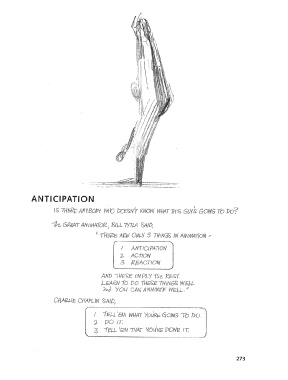 ANTICIPATION
IS THERE ANYBODY WHO DOESN'T KNOW WHAT THIS GUY'S GOING TO DO?
THE GREAT ANIMATOR, BILL TYTLA SAID,
"THERE ARE ONLY 3 THINGS IN ANIMATION –
1 ANTICIPATION
2 ACTION
3 REACTION
AND THESE IMPLY THE REST.
LEARN TO DO THESE THINGS WELL
AND YOU CAN ANIMATE WELL."
CHARLIE CHAPLIN SAID,
1 TELL 'EM WHAT YOU'RE GOING TO DO.
2 DO IT.
3 TELL 'EM THAT YOU'VE DONE IT.
273